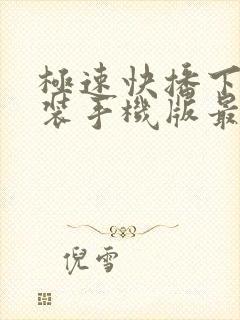 極速快播下
裝手機版最
倪雪